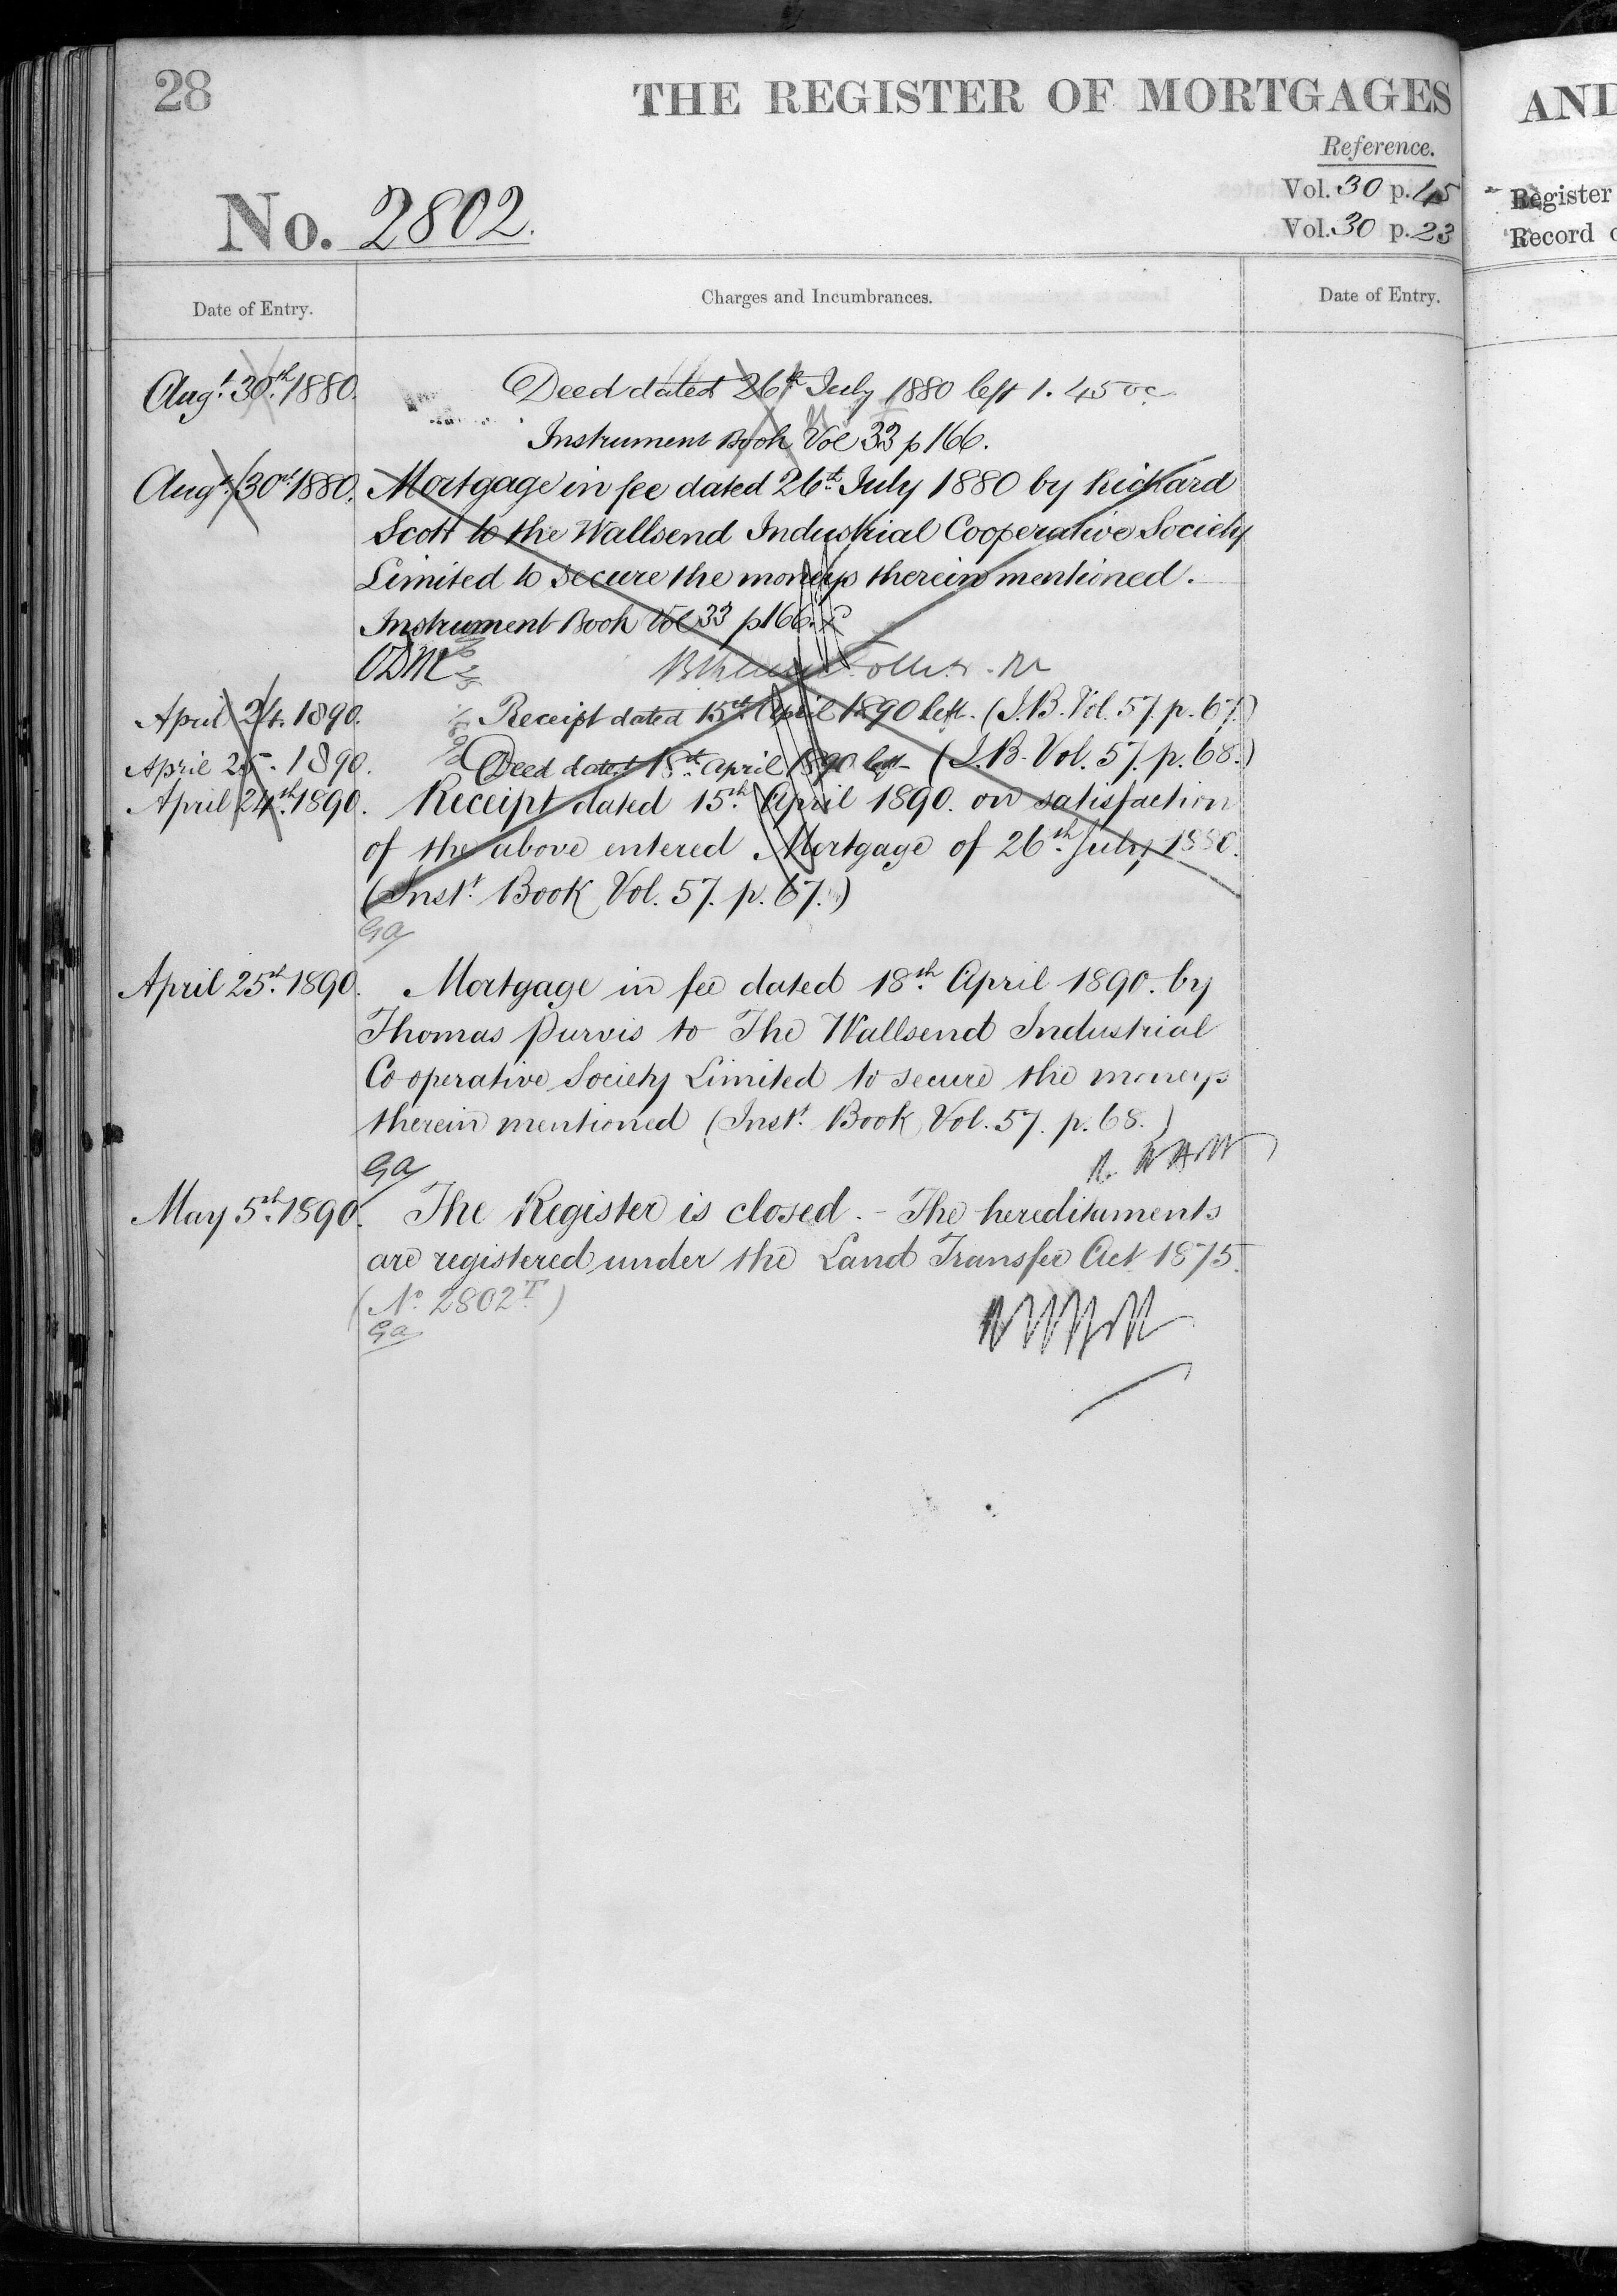 28
THE REGISTER OF MORTGAGES
Reference.
Vol. 30 p. 45
Vol. 30 p. 23
No. 2802.
Date of Entry.
Charges and Incumbrances.
Date of Entry.
Augt. 30th 1880. Deed dated 26th July 1880 left 1.45 oc
Instrument Book Vol 33 p 166.
Augt. 30th 1880. Mortgage in fee dated 26th July 1880 by Richard
Scott to the Wallsend Industrial Cooperative Society
Limited to secure the moneys therein mentioned.
Instrument Book Vol 33 p 166.
ODM
April 24. 1890. Receipt dated 15th April 1890 left. (I.B. Vol. 57. p. 67.)
April 25. 1890. Deed dated 18th April 1890 left (I.B. Vol. 57. p. 68.)
April 24th 1890. Receipt dated 15th April 1890. on satisfaction
of the above entered Mortgage of 26th July 1880.
(Inst. Book Vol. 57. p. 67.)
Ga
April 25th 1890. Mortgage in fee dated 18th April 1890. by
Thomas Purvis to The Wallsend Industrial
Cooperative Society Limited to secure the moneys
therein mentioned (Inst. Book Vol. 57. p. 68.)
Ga
May 5th 1890. The Register is closed. - The hereditaments
are registered under the Land Transfer Act 1875.
(No. 2802T)
Ga
AND
Register
Record o